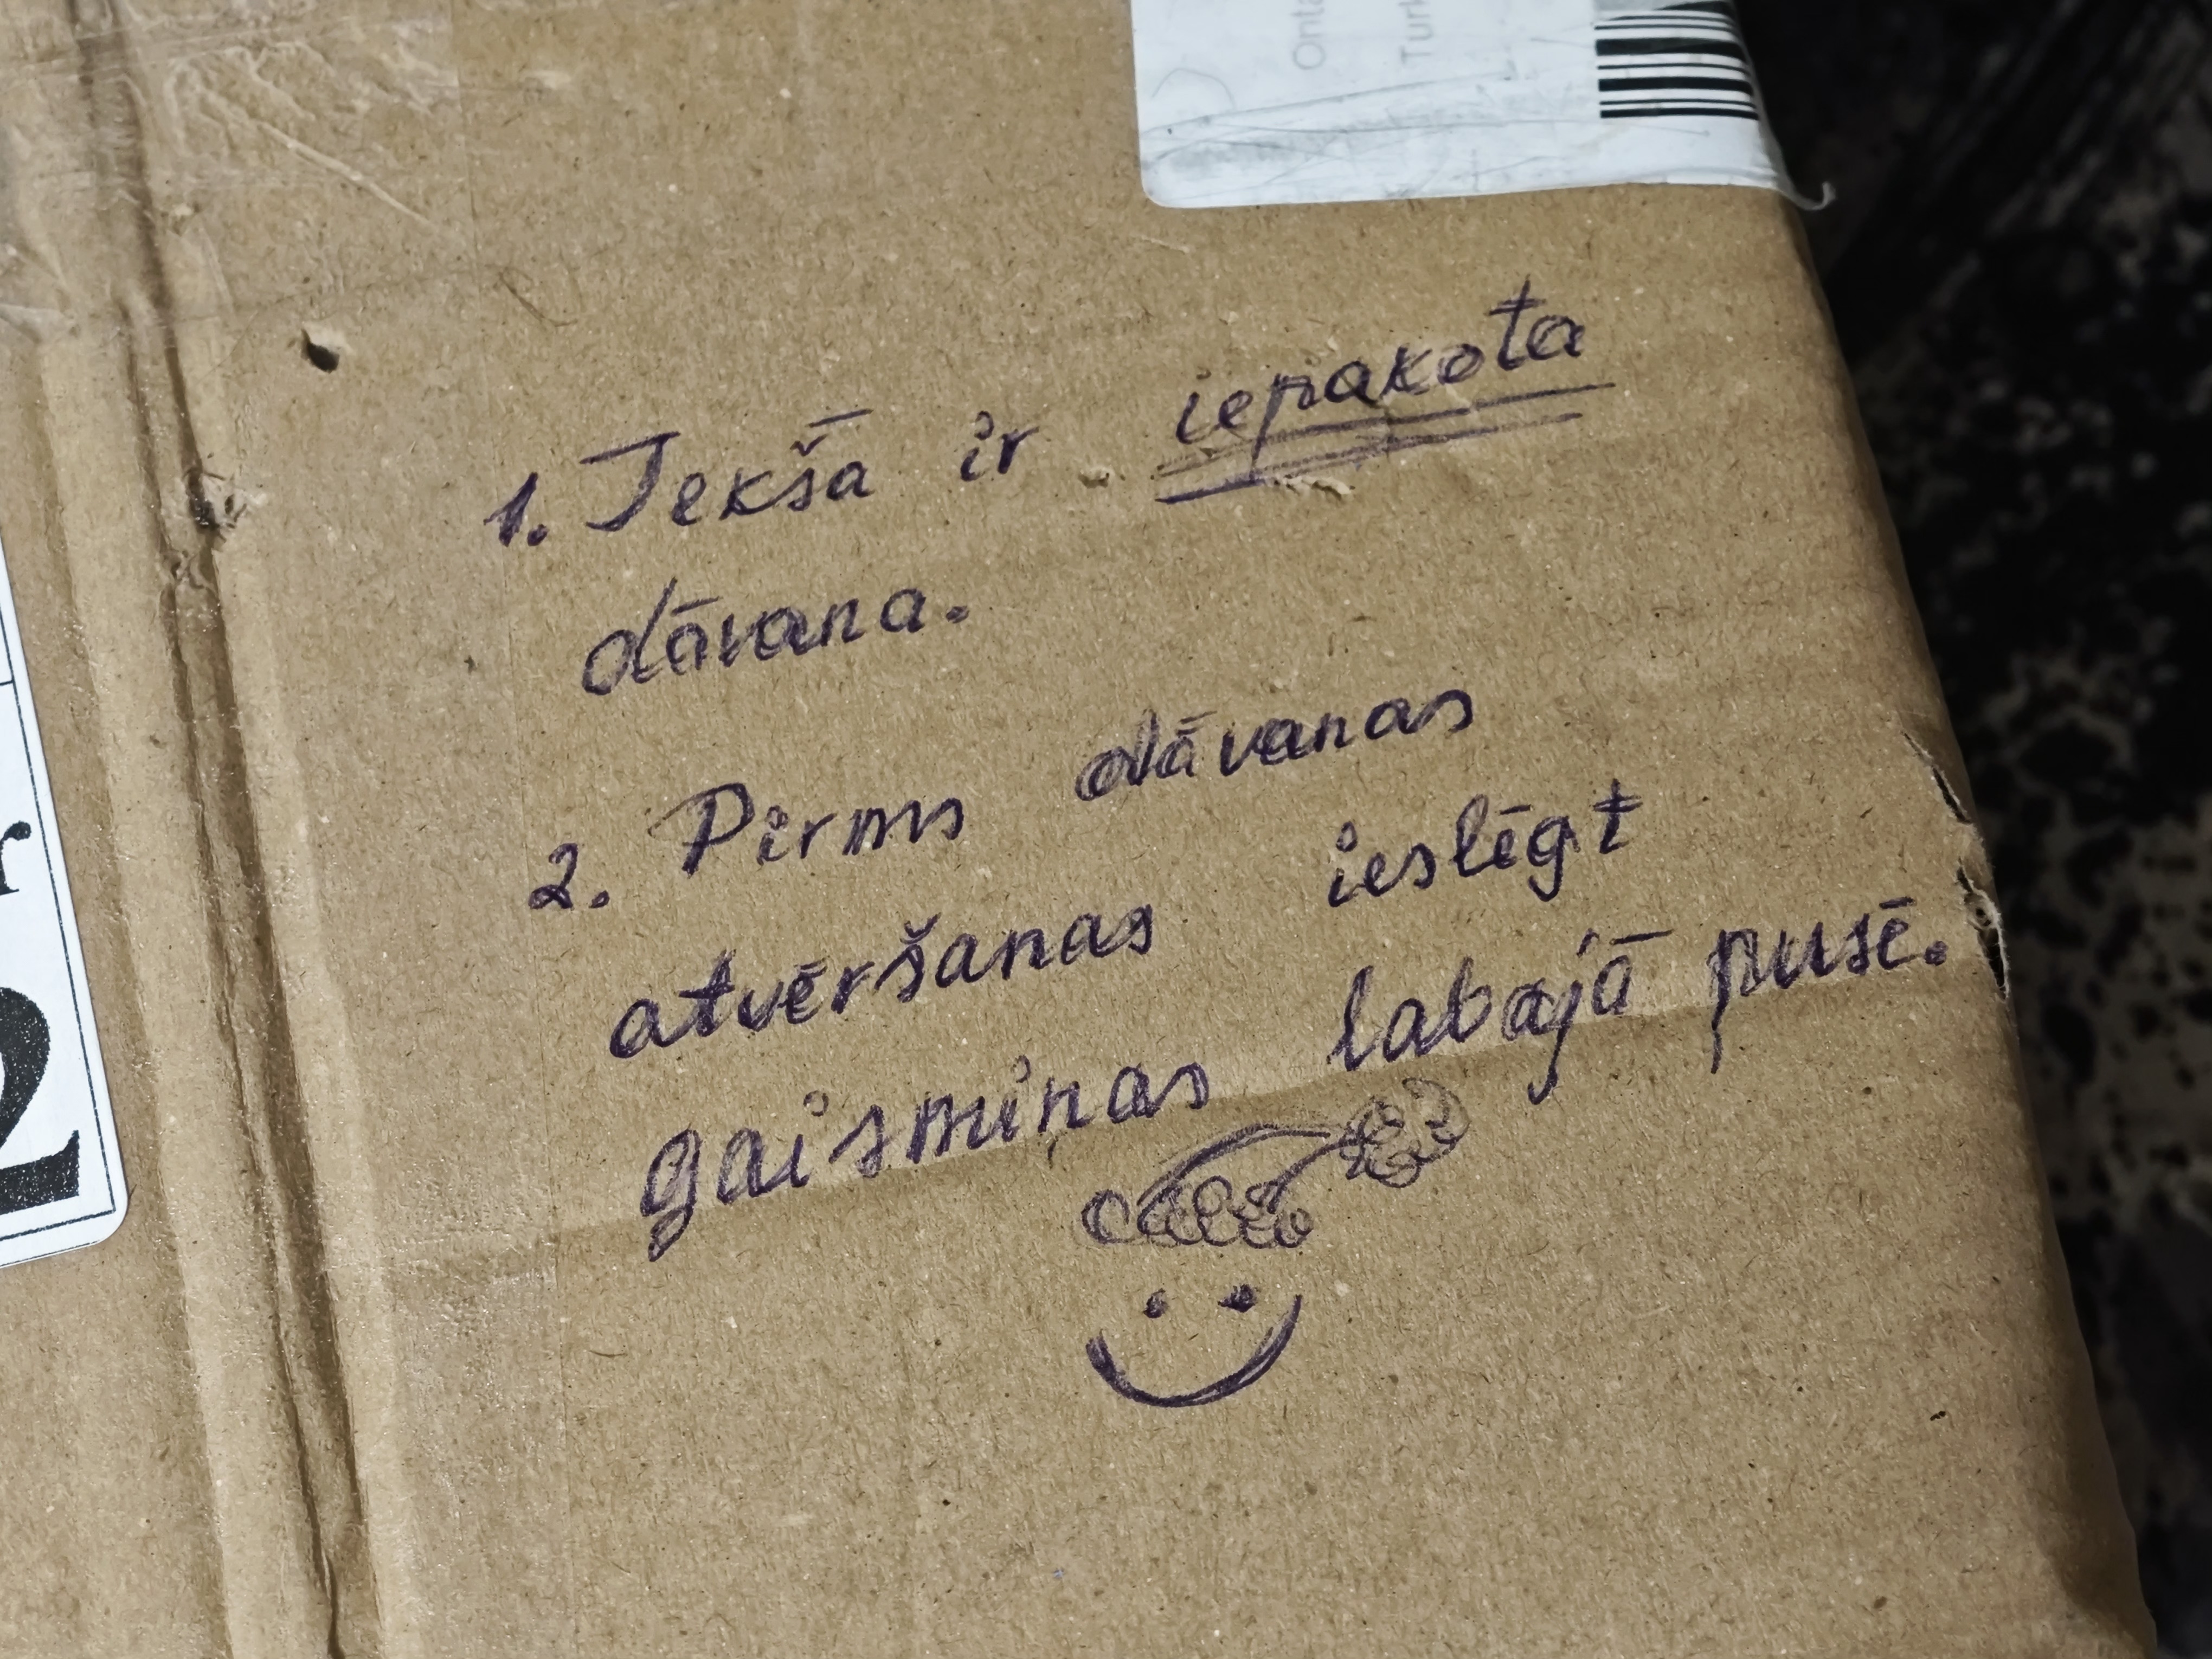 1. Iekšā ir iepakota
dāvana.
2. Pirms dāvanas
atvēršanas ieslēgt
gaismiņas labajā pusē.
r
2